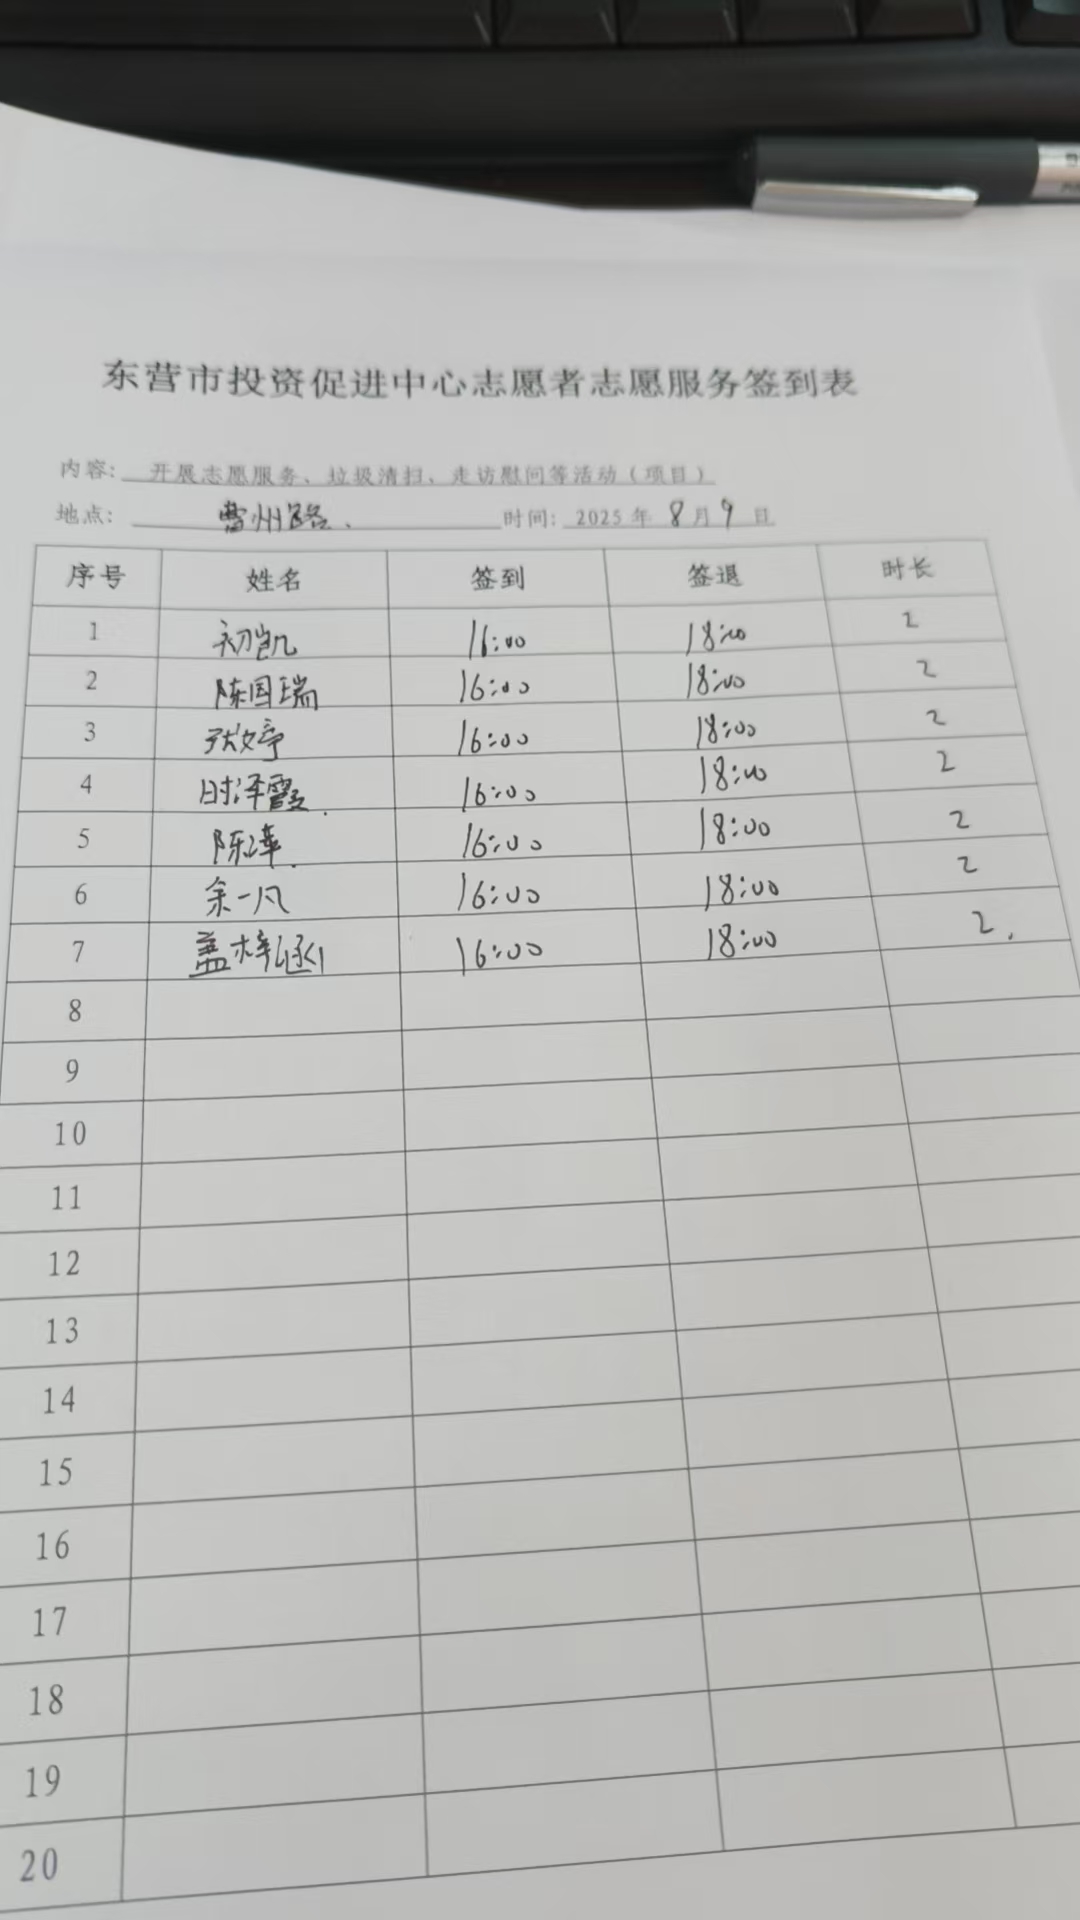 东营市投资促进中心志愿者志愿服务签到表
内容: 开展志愿服务、垃圾清扫、走访慰问等活动（项目）
地点: 曹州路. 时间: 2025 年 8 月 9 日
序号 姓名 签到 签退 时长
1 初凯 16:00 18:00 2
2 陈国瑞 16:00 18:00 2
3 16:00 18:00 2
4 时泽霞. 16:00 18:00 2
5 16:00 18:00 2
6 余一凡 16:00 18:00 2
7 盖梓涵 16:00 18:00 2.
8
9
10
11
12
13
14
15
16
17
18
19
20